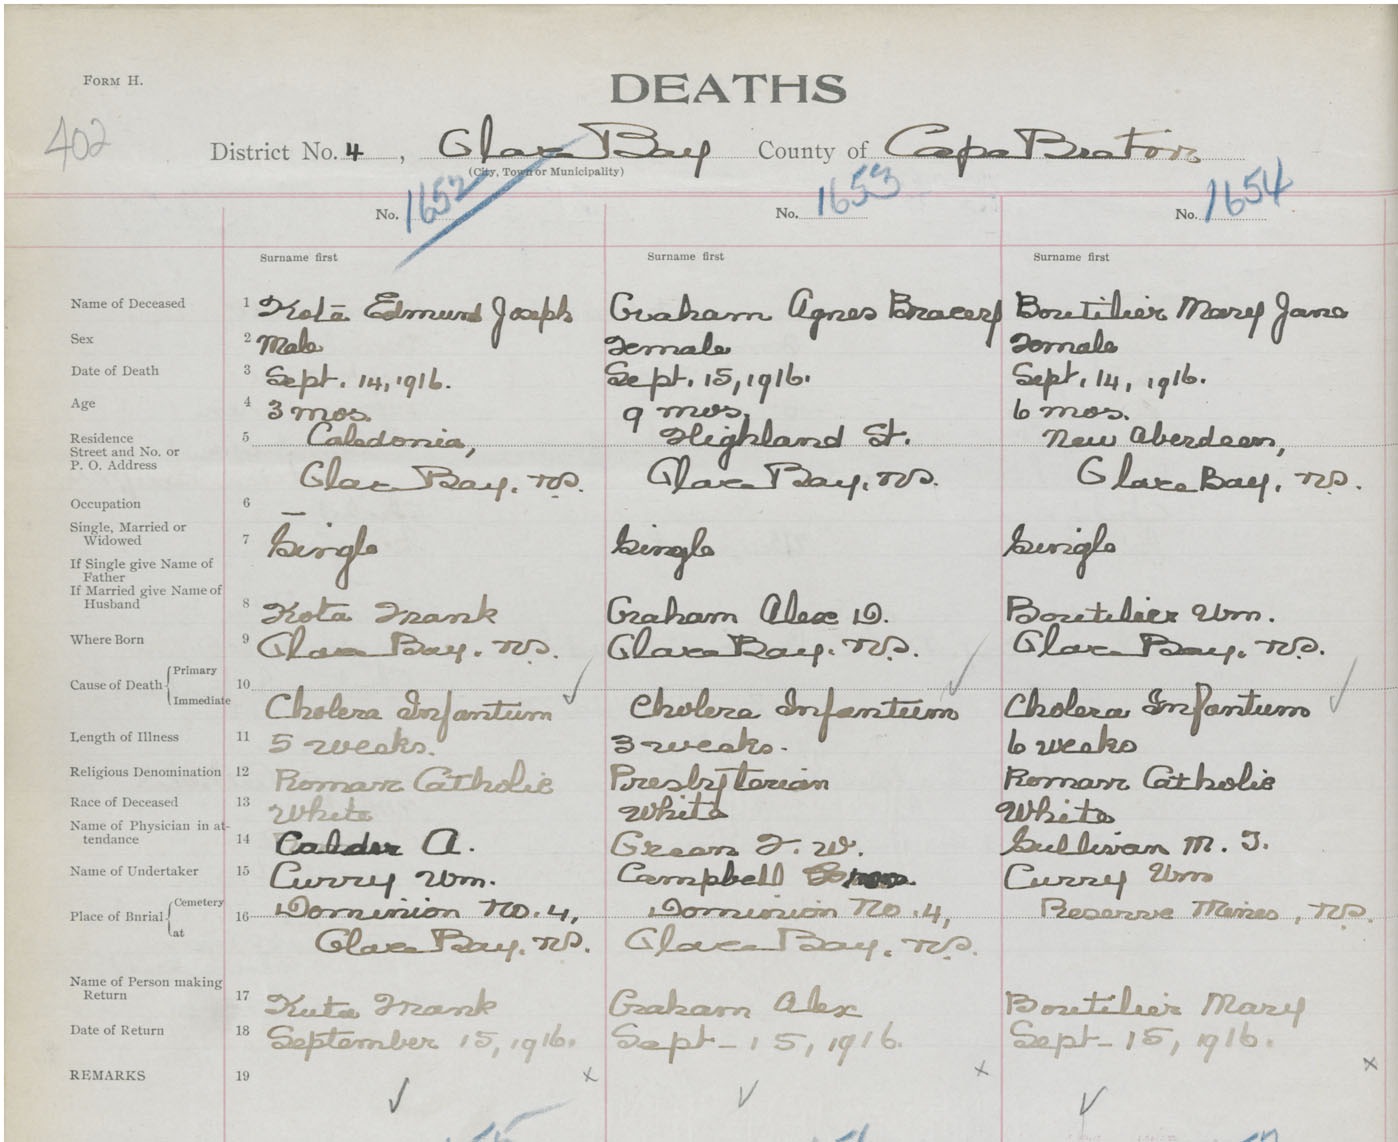 FORM H.
DEATHS
402
District No. 4, Glace Bay County of Cape Breton
(City, Town or Municipality)
No. 1652 No. 1653 No. 1654
Surname first Surname first Surname first
Name of Deceased 1 Kota Edmund Joseph Graham Agnes Boutilier Mary Jane
Sex 2 Male Female Female
Date of Death 3 Sept. 14, 1916. Sept. 15, 1916. Sept. 14, 1916.
Age 4 3 mos. 9 mos. 6 mos.
Residence 5 Caledonia, Highland St. New Aberdeen,
Street and No. or
P. O. Address Glace Bay, NS. Glace Bay, NS. Glace Bay, NS.
Occupation 6 —
Single, Married or
Widowed 7 Single Single Single
If Single give Name of
Father
If Married give Name of
Husband 8 Kota Frank Graham Alex D. Boutilier Wm.
Where Born 9 Glace Bay, NS. Glace Bay, NS. Glace Bay, NS.
Cause of Death Primary 10
Immediate Cholera Infantum Cholera Infantum Cholera Infantum
Length of Illness 11 5 weeks. 3 weeks. 6 weeks
Religious Denomination 12 Roman Catholic Presbyterian Roman Catholic
Race of Deceased 13 White White White
Name of Physician in at-
tendance 14 Calder A. Green F. W. Sullivan M. T.
Name of Undertaker 15 Curry Wm. Campbell Curry Wm
Place of Burial Cemetery 16 Dominion No. 4, Dominion No. 4, Reserve Mines, NS.
at Glace Bay, NS. Glace Bay, NS.
Name of Person making
Return 17 Kuta Frank Graham Alex Boutilier Mary
Date of Return 18 September 15, 1916. Sept- 15, 1916. Sept- 15, 1916.
REMARKS 19 x x x